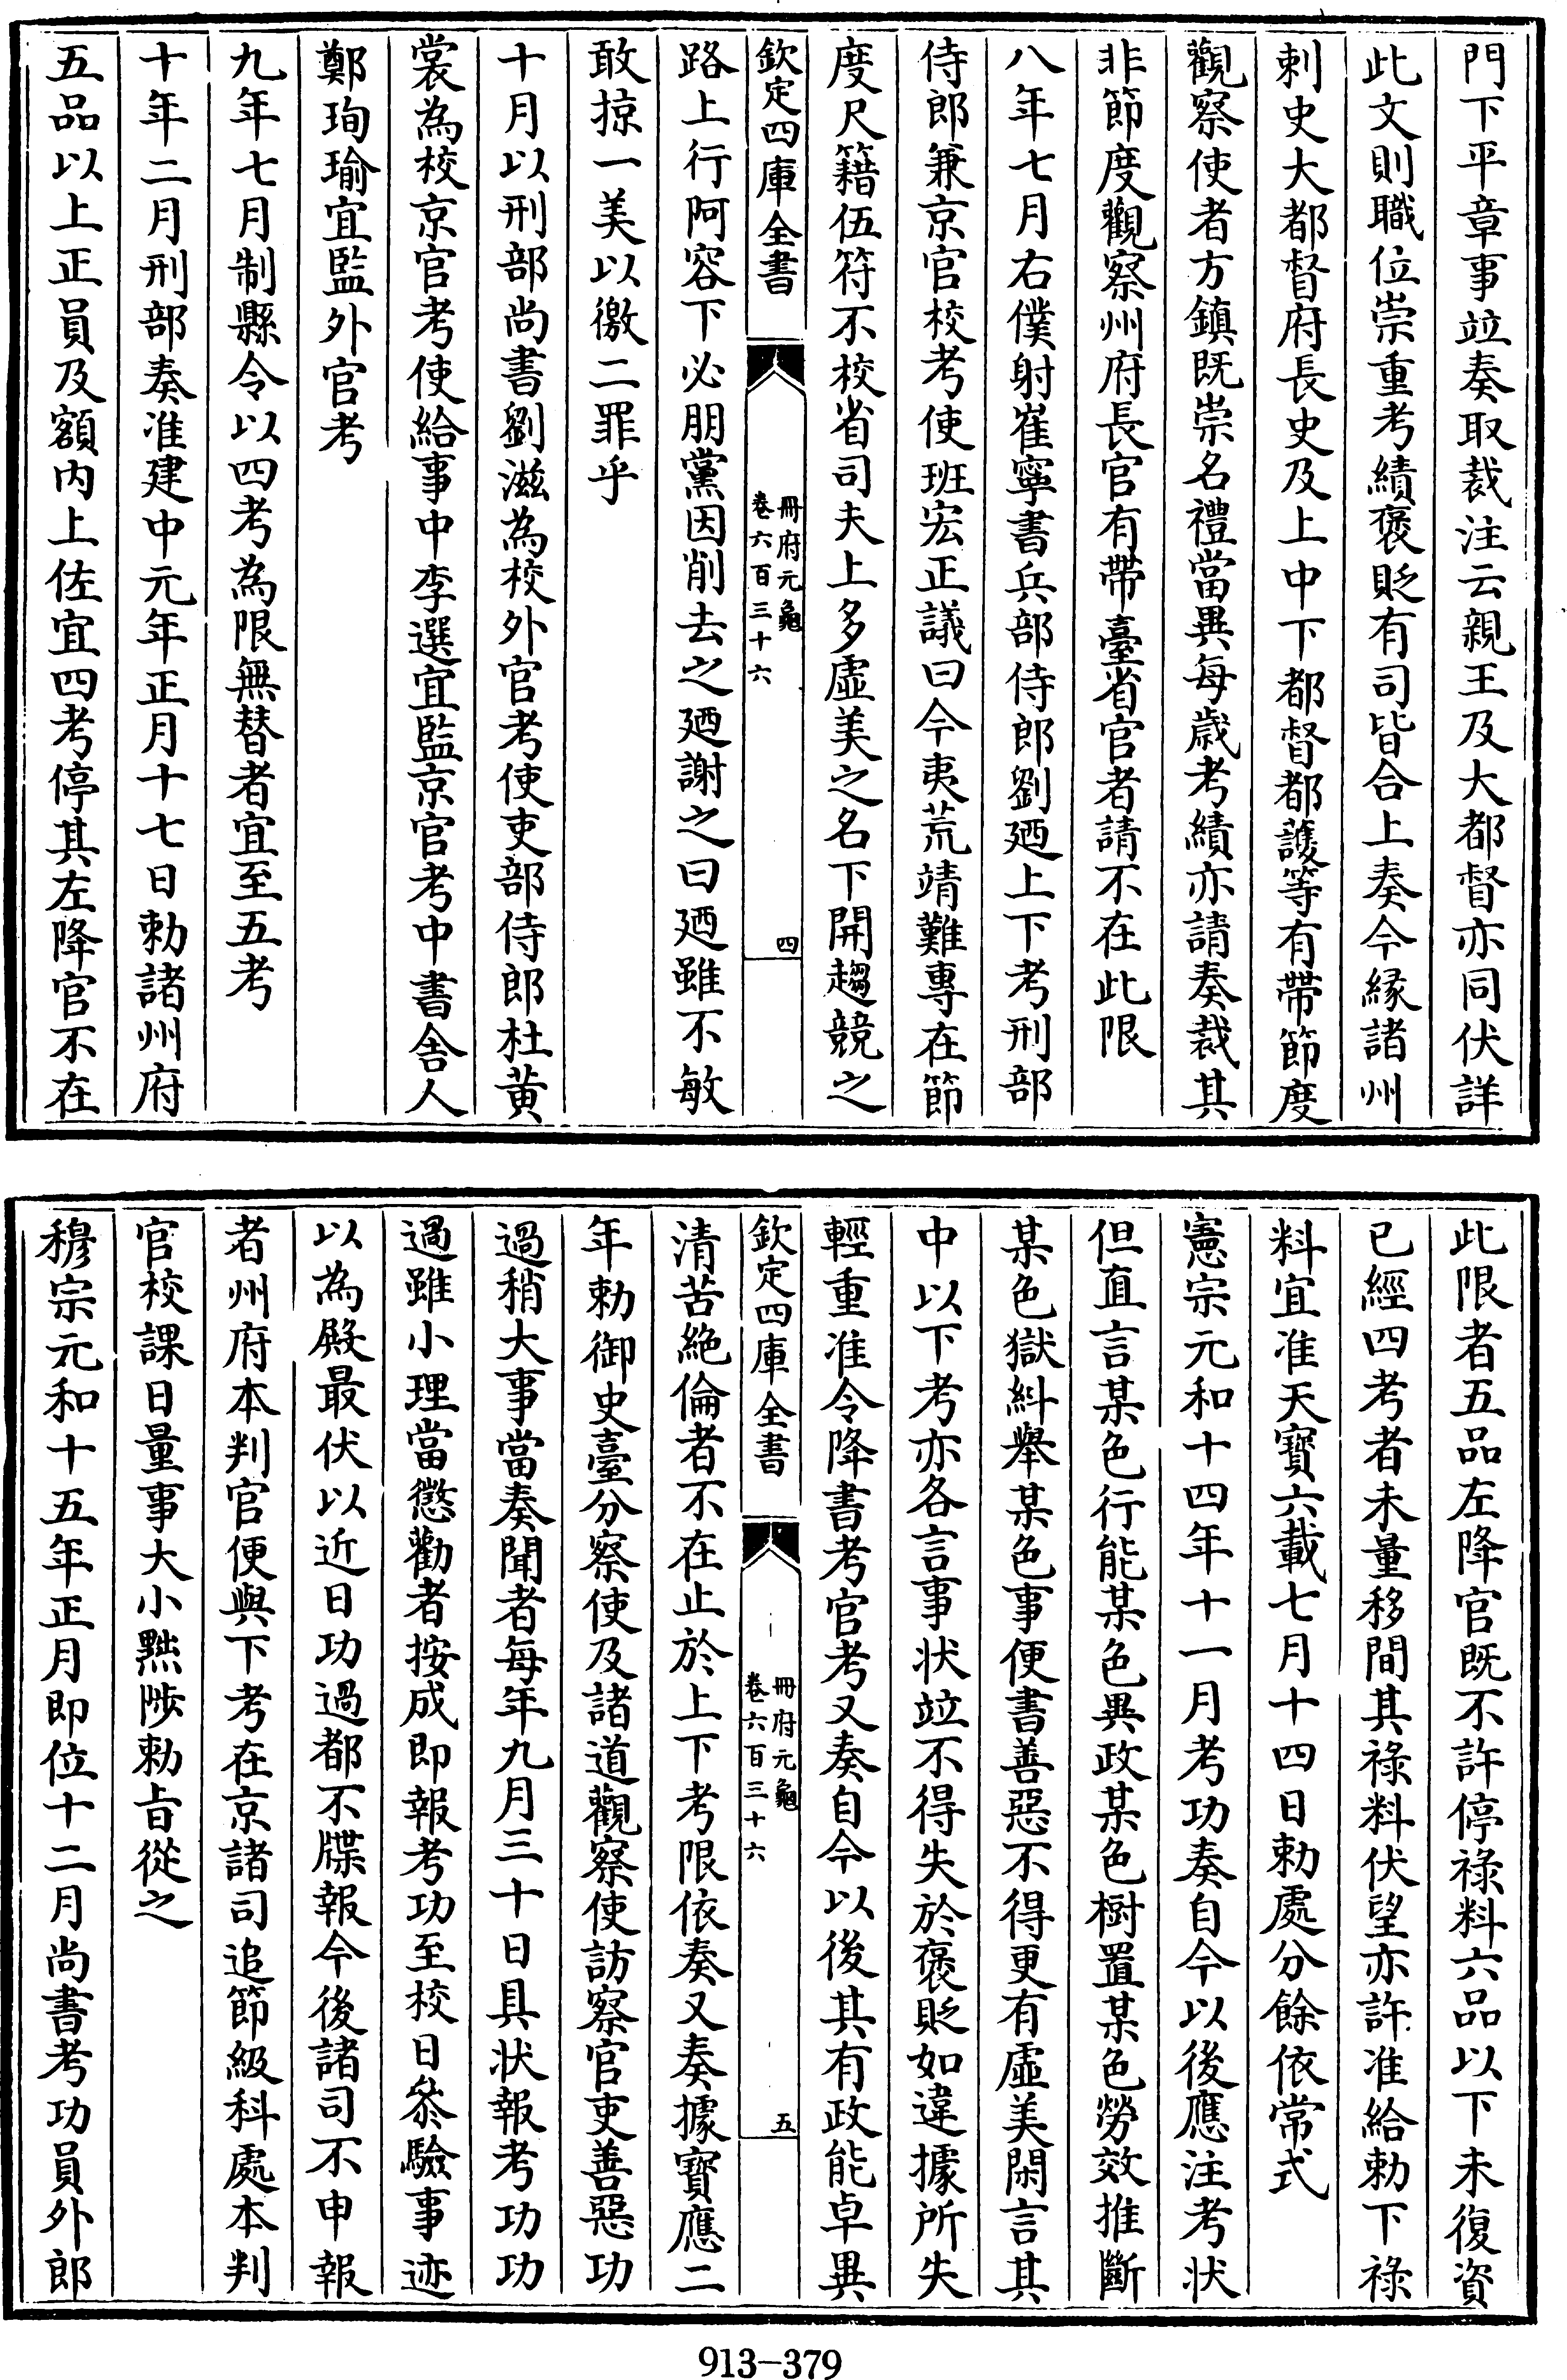 門下平章事竝奏取裁注云親王及大都督亦同伏詳
此文則職位崇重考績褒貶有司皆合上奏今縁諸州
刺史大都督府長史及上中下都督都護等有帶節度
觀察使者方鎮既崇名禮當異每歲考績亦請奏裁其
非節度觀察州府長官有帶臺省官者請不在此限
八年七月右僕射崔寧書兵部侍郎劉廼上下考刑部
侍郎兼京官校考使班宏正議曰今夷荒靖難專在節
度尺籍伍符不校省司夫上多虛美之名下開趨競之
欽定四庫全書
冊府元龜
卷六百三十六
四
路上行阿容下必朋黨因削去之廼謝之曰廼雖不敏
敢掠一美以徼二罪乎
十月以刑部尚書劉滋為校外官考使吏部侍郎杜黃
裳為校京官考使給事中李選宜監京官考中書舍人
鄭珣瑜宜監外官考
九年七月制縣令以四考為限無替者宜至五考
十年二月刑部奏准建中元年正月十七日勅諸州府
五品以上正員及額內上佐宜四考停其左降官不在
此限者五品左降官既不許停祿料六品以下未復資
已經四考者未量移間其祿料伏望亦許准給勅下祿
料宜准天寶六載七月十四日勅處分餘依常式
憲宗元和十四年十一月考功奏自今以後應注考狀
但直言某色行能某色異政某色樹置某色勞效推斷
某色獄糾舉某色事便書善惡不得更有虛美閑言其
中以下考亦各言事狀竝不得失於褒貶如違據所失
輕重准令降書考官考又奏自今以後其有政能卓異
欽定四庫全書
冊府元龜
卷六百三十六
五
清苦絶倫者不在止於上下考限依奏又奏據寶應二
年勅御史臺分察使及諸道觀察使訪察官吏善惡功
過稍大事當奏聞者每年九月三十日具狀報考功功
過雖小理當懲勸者按成即報考功至校日叅驗事迹
以為殿最伏以近日功過都不牒報今後諸司不申報
者州府本判官便與下考在京諸司追節級科處本判
官校課日量事大小黜陟勅旨從之
穆宗元和十五年正月即位十二月尚書考功員外郎
913-379